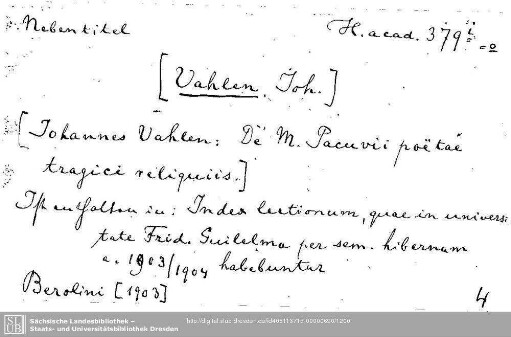 Nebentitel
H. acad. 379
[Vahlen, Joh.]
[Johannes Vahlen: De M. Pacuvii poëtae
tragici reliquiis.]
Ist enthalten in: Index lectionum, quae in universi-
tate Frid. Guilelma per sem. hibernum
a. 1903/1904 habebuntur
Berolini [1903]
4
SLUB
Sächsische Landesbibliothek –
Staats- und Universitätsbibliothek Dresden